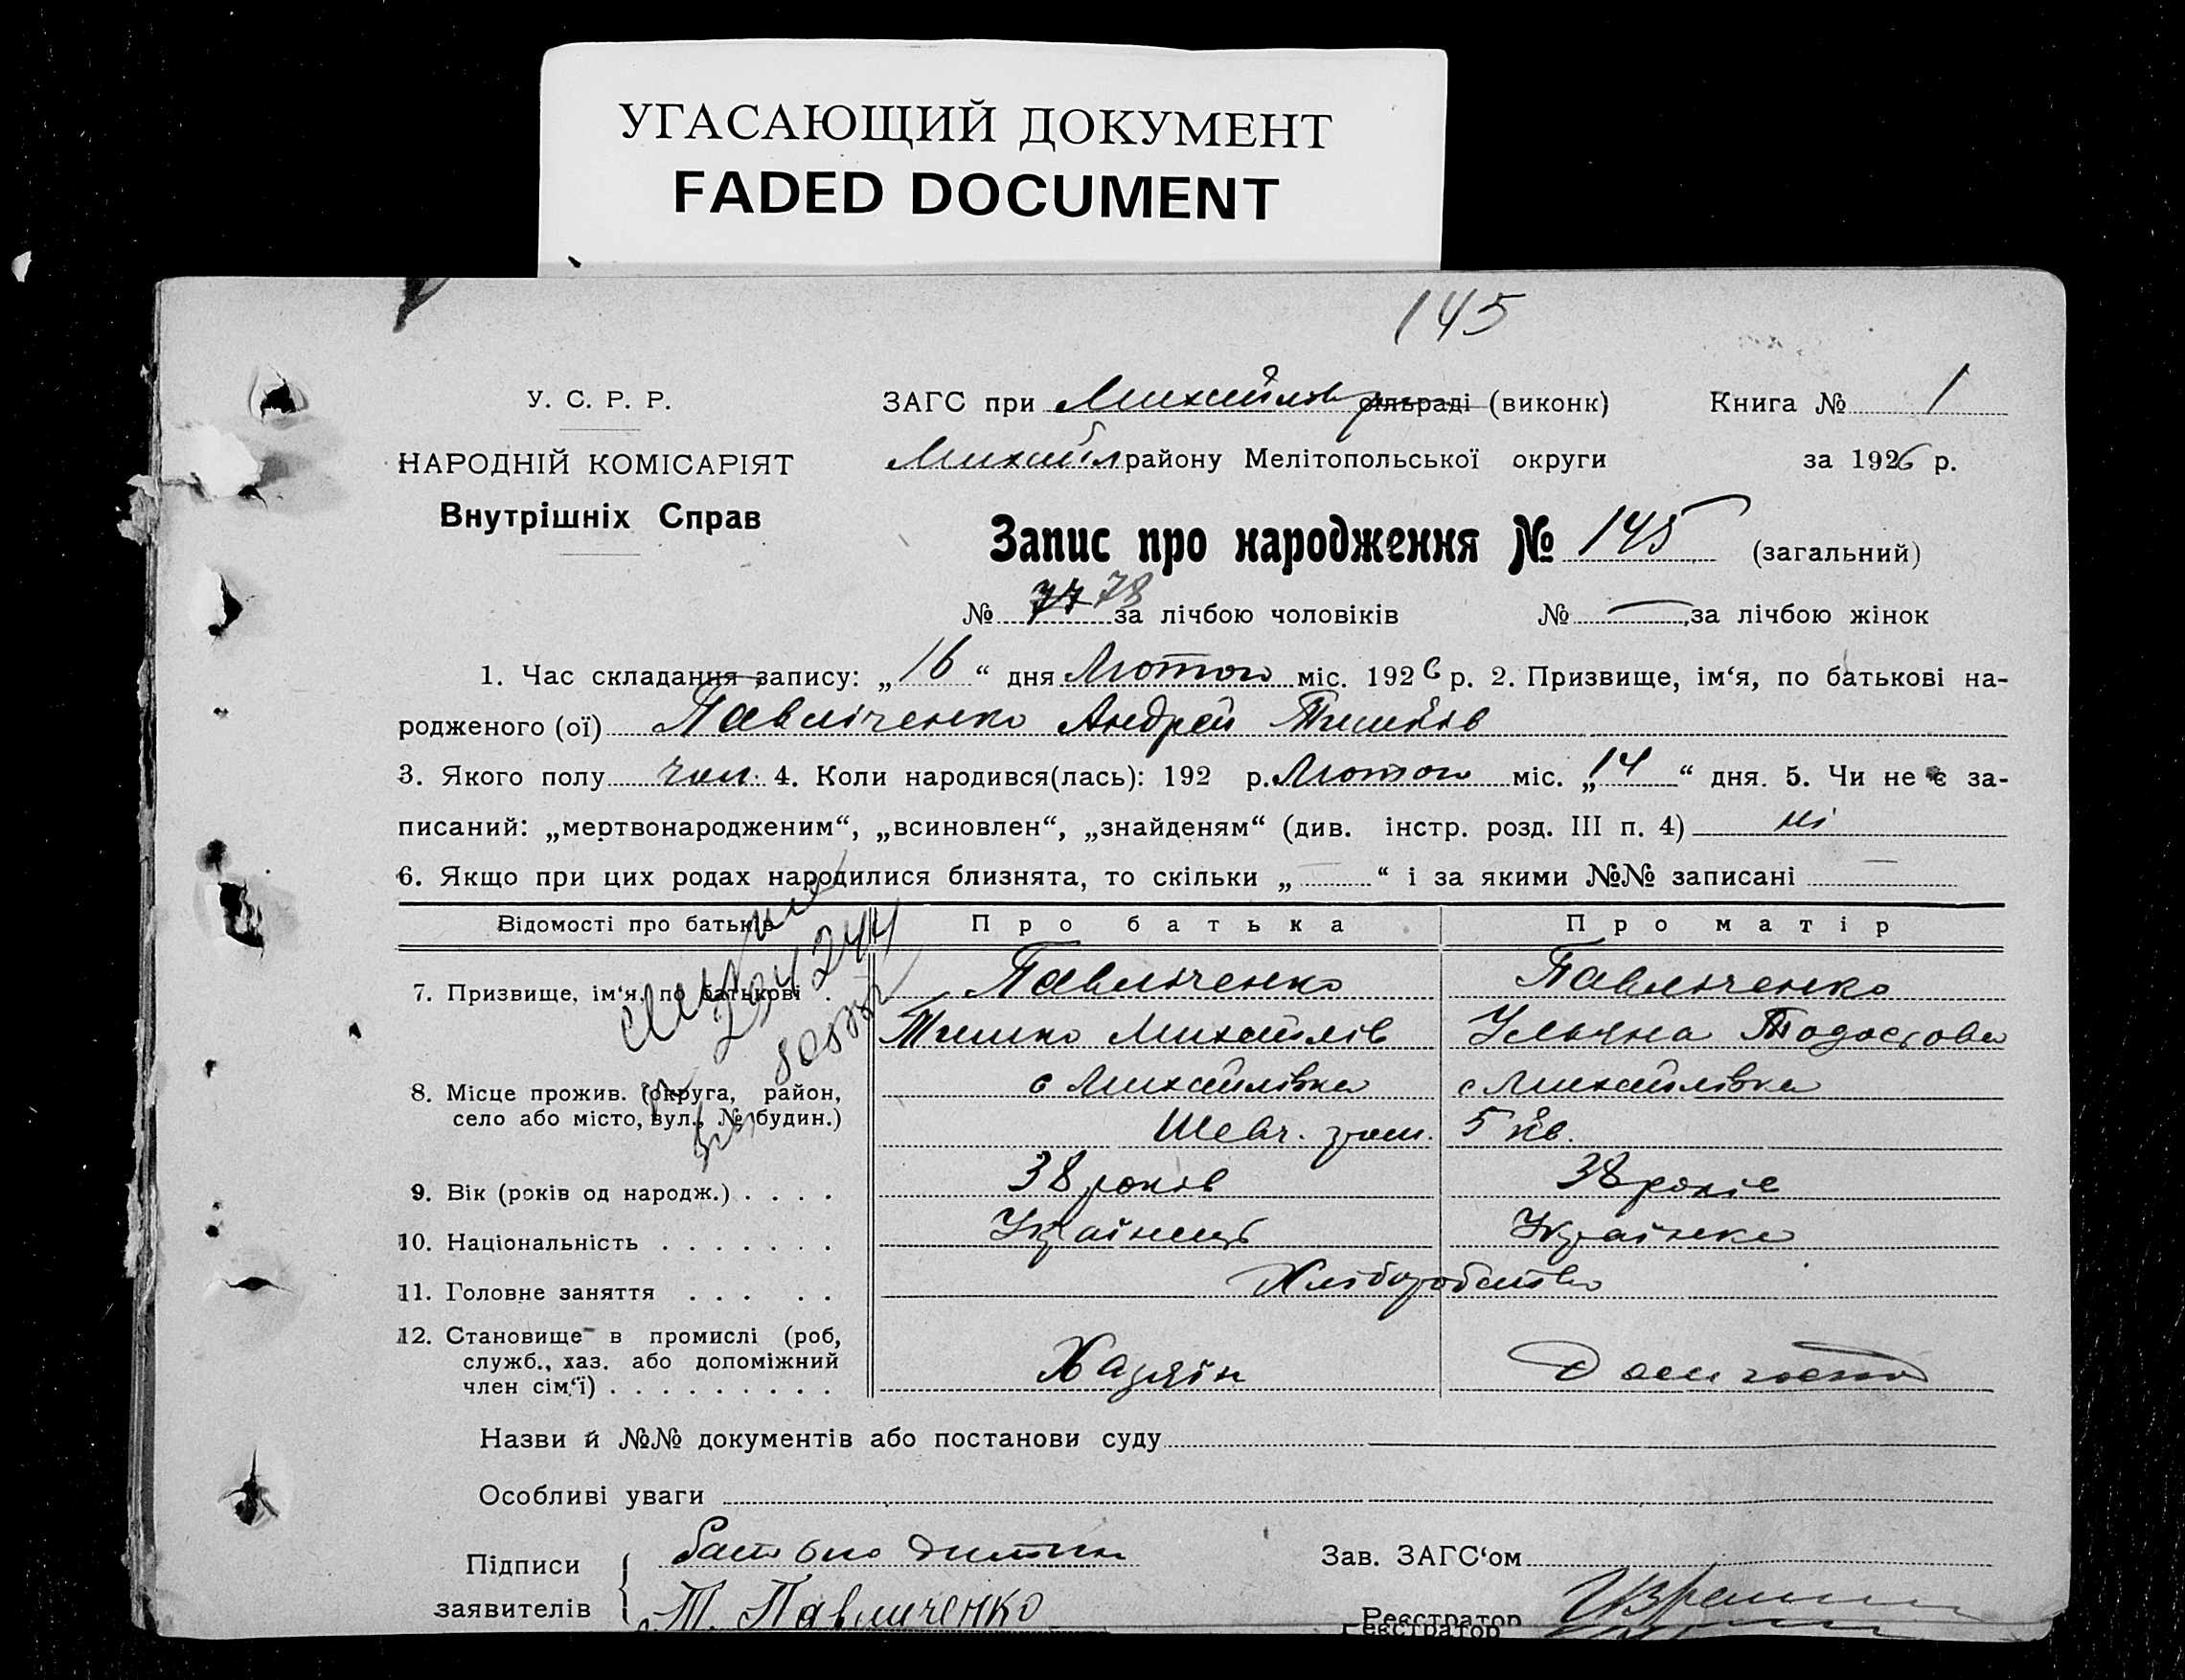 УГАСАЮЩИЙ ДОКУМЕНТ
FADED DOCUMENT
145
У. С. Р. Р.
НАРОДНІЙ КОМІСАРІЯТ
Внутрішніх Справ
ЗАГС при Михайлів сільраді (виконк)
Книга № 1
Михайл району Мелітопольської округи
за 1926 р.
Запис про народження № 145 (загальний)
№ 77 78 за лічбою чоловіків № — за лічбою жінок
1. Час складання запису: „16“ дня Лютого міс. 1926 р. 2. Призвище, ім‘я, по батькові на-
родженого (ої) Павліченко Андрей Тишків
3. Якого полу чол. 4. Коли народився(лась): 192 р. Лютого міс. „14“ дня. 5. Чи не є за-
писаний: „мертвонародженим“, „всиновлен“, „знайденям“ (див. інстр. розд. III п. 4) ні
6. Якщо при цих родах народилися близнята, то скільки „—“ і за якими №№ записані —
Відомості про батьків
Про батька
Про матір
7. Призвище, ім‘я, по батькові .
Павліченко
Павліченко
Тишко Михайлів
Ульяна
8. Місце прожив. (округа, район,
село або місто, вул., № будин.)
с Михайлівка
с Михайлівка
Шевч. 5 кв.
9. Вік (років од народж.) . . . .
38 років
38 років
10. Національність . . . . . . .
Українець
Українка
11. Головне заняття . . . . .
Хліборобство
12. Становище в промислі (роб,
служб., хаз. або допоміжний
член сім‘ї) . . . . . . . . .
Хазяїн
Назви й №№ документів або постанови суду
Особливі уваги
Підписи
заявителів
батько дитини
Т. Павличенко
Зав. ЗАГС‘ом
Реєстратор